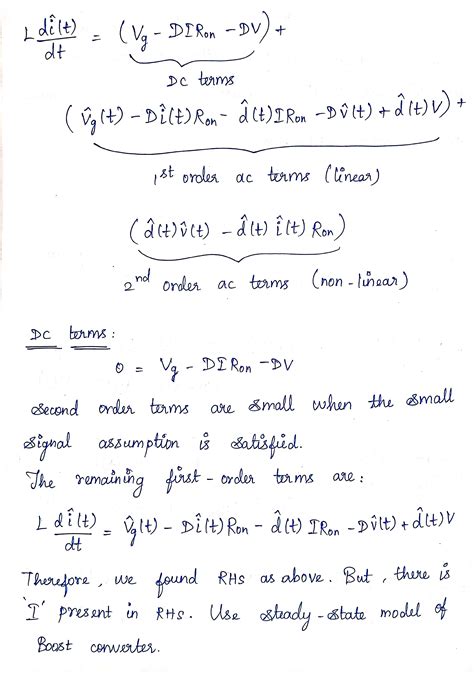 L dî(t)/dt = (Vg - DIRon - DV) +
DC terms
(v̂g(t) - Dî(t)Ron - d̂(t)IRon - Dv̂(t) + d̂(t)V) +
1st order ac terms (linear)
(d̂(t)v̂(t) - d̂(t) î(t) Ron)
2nd order ac terms (non-linear)
DC terms:
0 = Vg - DIRon - DV
Second order terms are small when the small
signal assumption is satisfied.
The remaining first-order terms are:
L dî(t)/dt = v̂g(t) - Dî(t)Ron - d̂(t) IRon - Dv̂(t) + d̂(t)V
Therefore, we found RHS as above. But, there is
'I' present in RHS. Use steady-state model of
Boost converter.